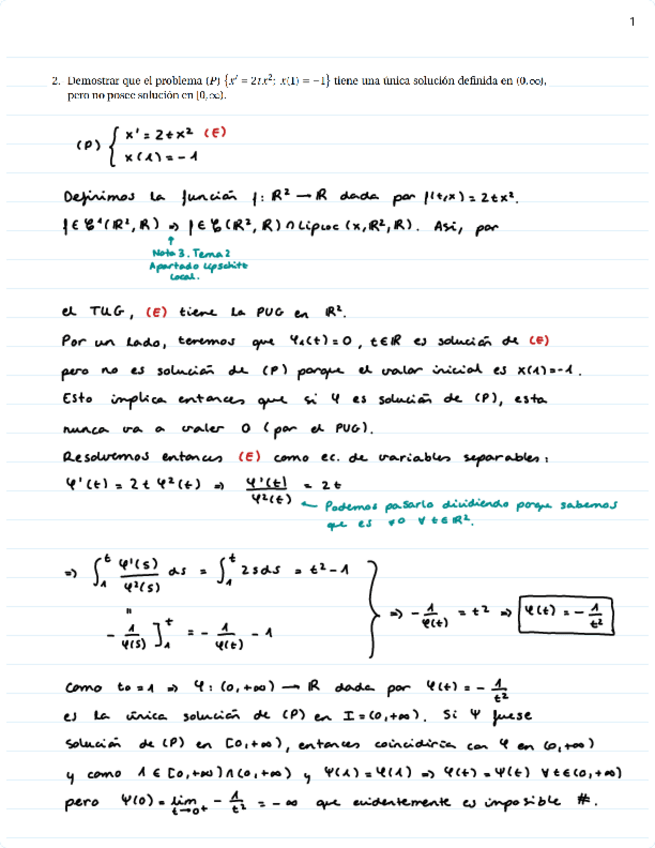 1
2. Demostrar que el problema (P) {x' = 2tx²; x(1) = −1} tiene una única solución definida en (0,∞),
pero no posee solución en [0,∞).
(P) { x' = 2tx² (E)
x(1) = -1
Definimos la función f: R² → R dada por f(t,x) = 2tx².
f ∈ C¹(R², R) ⇒ f ∈ C(R², R) ∩ Liploc (x, R², R). Así, por
↑
Nota 3. Tema 2
Apartado Lipschitz
Local.
el TUG, (E) tiene la PUG en R².
Por un lado, tenemos que φ₁(t) = 0, t∈R es solución de (E)
pero no es solución de (P) porque el valor inicial es x(1) = -1.
Esto implica entonces que si φ es solución de (P), esta
nunca va a valer 0 (por el PUG).
Resolvemos entonces (E) como ec. de variables separables:
φ'(t) = 2t φ²(t) ⇒ φ'(t)/φ²(t) = 2t
← Podemos pasarlo dividiendo porque sabemos
que es ≠0 ∀ t∈R².
⇒ ∫₁ᵗ φ'(s)/φ²(s) ds = ∫₁ᵗ 2s ds = t² - 1
"
- 1/φ(s) ]₁ᵗ = - 1/φ(t) - 1
} ⇒ - 1/φ(t) = t² ⇒ φ(t) = - 1/t²
Como t₀ = 1 ⇒ φ: (0,+∞) → R dada por φ(t) = - 1/t²
es la única solución de (P) en I = (0,+∞). Si ψ fuese
solución de (P) en [0,+∞), entonces coincidiría con φ en (0,+∞)
y como 1 ∈ [0,+∞) ∩ (0,+∞) y ψ(1) = φ(1) ⇒ φ(t) = ψ(t) ∀ t∈(0,+∞)
pero ψ(0) = lim t→0⁺ - 1/t² = -∞ que evidentemente es imposible #.